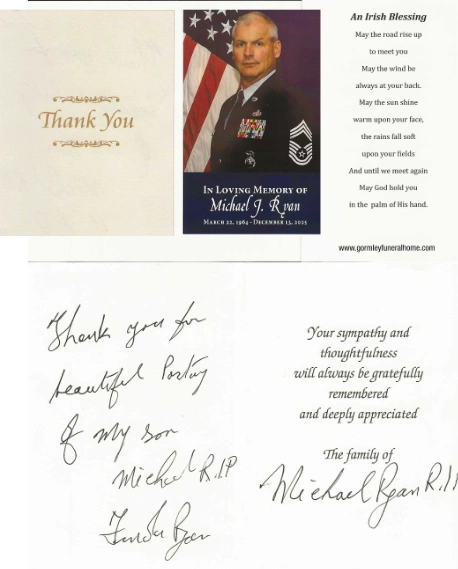 Thank You
IN LOVING MEMORY OF
Michael J. Ryan
MARCH 22, 1964 - DECEMBER 13, 2025
An Irish Blessing
May the road rise up
to meet you
May the wind be
always at your back.
May the sun shine
warm upon your face,
the rains fall soft
upon your fields
And until we meet again
May God hold you
in the palm of His hand.
www.gormleyfuneralhome.com
Thank you for
beautiful
of my son
Michael R.I.P
Ryan
Your sympathy and
thoughtfulness
will always be gratefully
remembered
and deeply appreciated
The family of
Michael Ryan R.I.